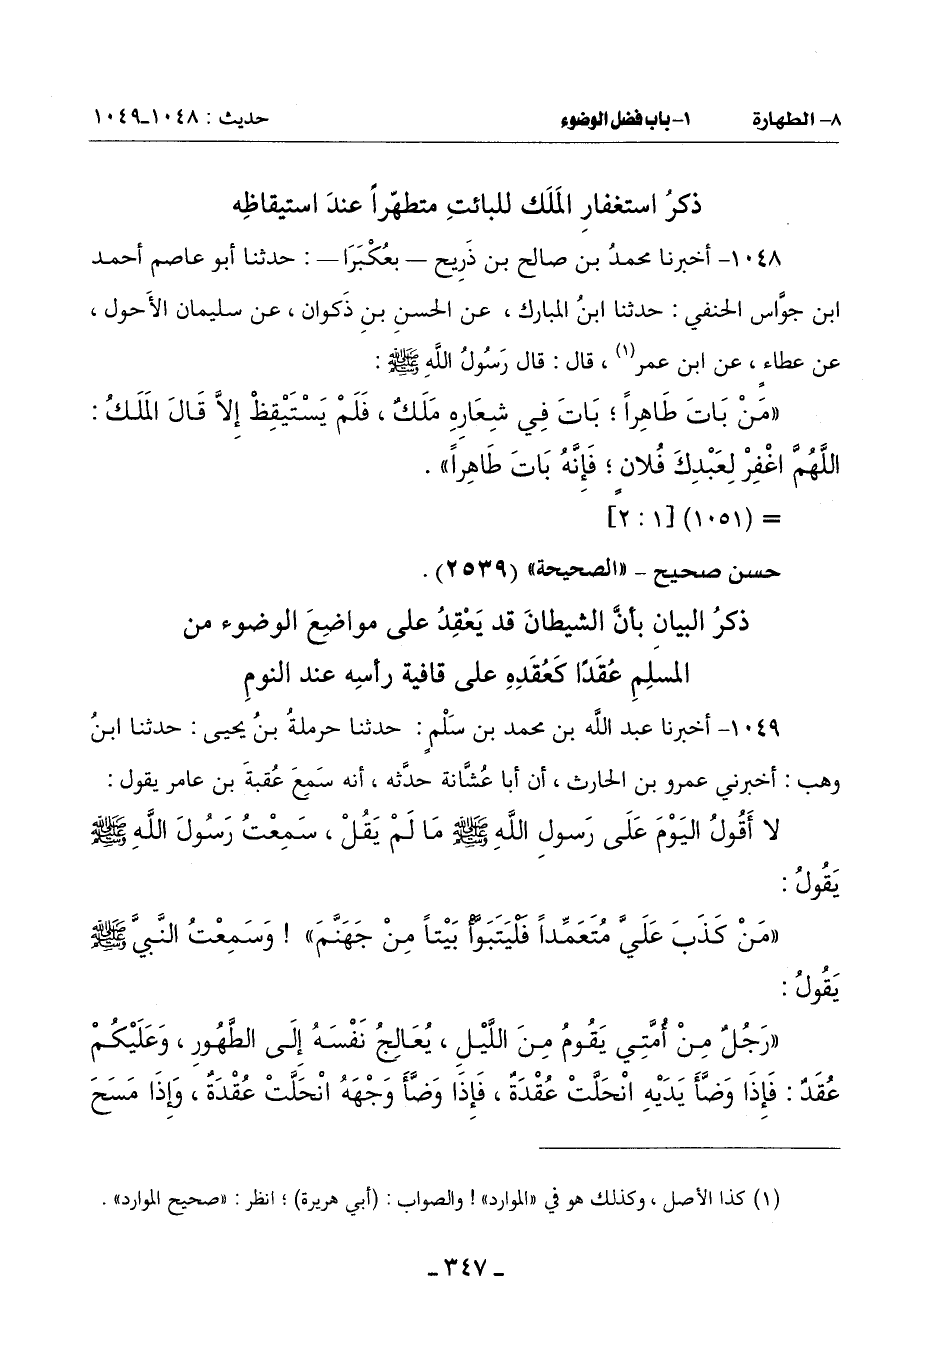 ٨- الطهارة ١- باب فضل الوضوء حديث : ١٠٤٨-١٠٤٩
ذكرُ استغفارِ المَلَك للبائتِ متطهّراً عندَ استيقاظِه
١٠٤٨- أخبرنا محمدُ بن صالح بن ذَرِيح — بعُكْبَرَا — : حدثنا أبو عاصم أحمد
ابن جوَّاس الحنفي : حدثنا ابنُ المبارك ، عن الحسنِ بنِ ذكوان ، عن سليمان الأحول ،
عن عطاء ، عن ابن عمر(١) ، قال : قال رَسُولُ اللَّهِ ﷺ :
«مَنْ بَاتَ طَاهِراً ؛ بَاتَ فِي شِعَارِهِ مَلَكٌ ، فَلَمْ يَسْتَيْقِظْ إِلاَّ قَالَ المَلَكُ :
اللَّهُمَّ اغْفِرْ لِعَبْدِكَ فُلانٍ ؛ فَإِنَّهُ بَاتَ طَاهِراً» .
= (١٠٥١) [١ : ٢]
حسن صحيح - «الصحيحة» (٢٥٣٩) .
ذكرُ البيانِ بأنَّ الشيطانَ قد يَعْقِدُ على مواضِعَ الوضوء من
المسلِمِ عُقَدًا كَعُقَدِهِ على قافية رأسِه عند النومِ
١٠٤٩- أخبرنا عبد اللَّه بن محمد بن سَلْمٍ : حدثنا حرملةُ بنُ يحيى : حدثنا ابنُ
وهب : أخبرني عمرو بن الحارث ، أن أبا عُشَّانة حدَّثه ، أنه سَمِعَ عُقبةَ بن عامر يقول :
لا أَقُولُ اليَوْمَ عَلَى رَسولِ اللَّهِ ﷺ مَا لَمْ يَقُلْ ، سَمِعْتُ رَسُولَ اللَّهِ ﷺ
يَقُولُ :
«مَنْ كَذَبَ عَلَيَّ مُتَعَمِّداً فَلْيَتَبَوَّأْ بَيْتاً مِنْ جَهَنَّمَ» ! وَسَمِعْتُ النَّبِيَّ ﷺ
يَقُولُ :
«رَجُلٌ مِنْ أُمَّتِي يَقُومُ مِنَ اللَّيْلِ ، يُعَالِجُ نَفْسَهُ إِلَى الطَّهُورِ ، وَعَلَيْكُمْ
عُقَدٌ : فَإِذَا وَضَّأَ يَدَيْهِ انْحَلَّتْ عُقْدَةٌ ، فَإِذَا وَضَّأَ وَجْهَهُ انْحَلَّتْ عُقْدَةٌ ، وَإِذَا مَسَحَ
(١) كذا الأصل ، وكذلك هو في «الموارد» ! والصواب : (أبي هريرة) ؛ انظر : «صحيح الموارد» .
- ٣٤٧ -